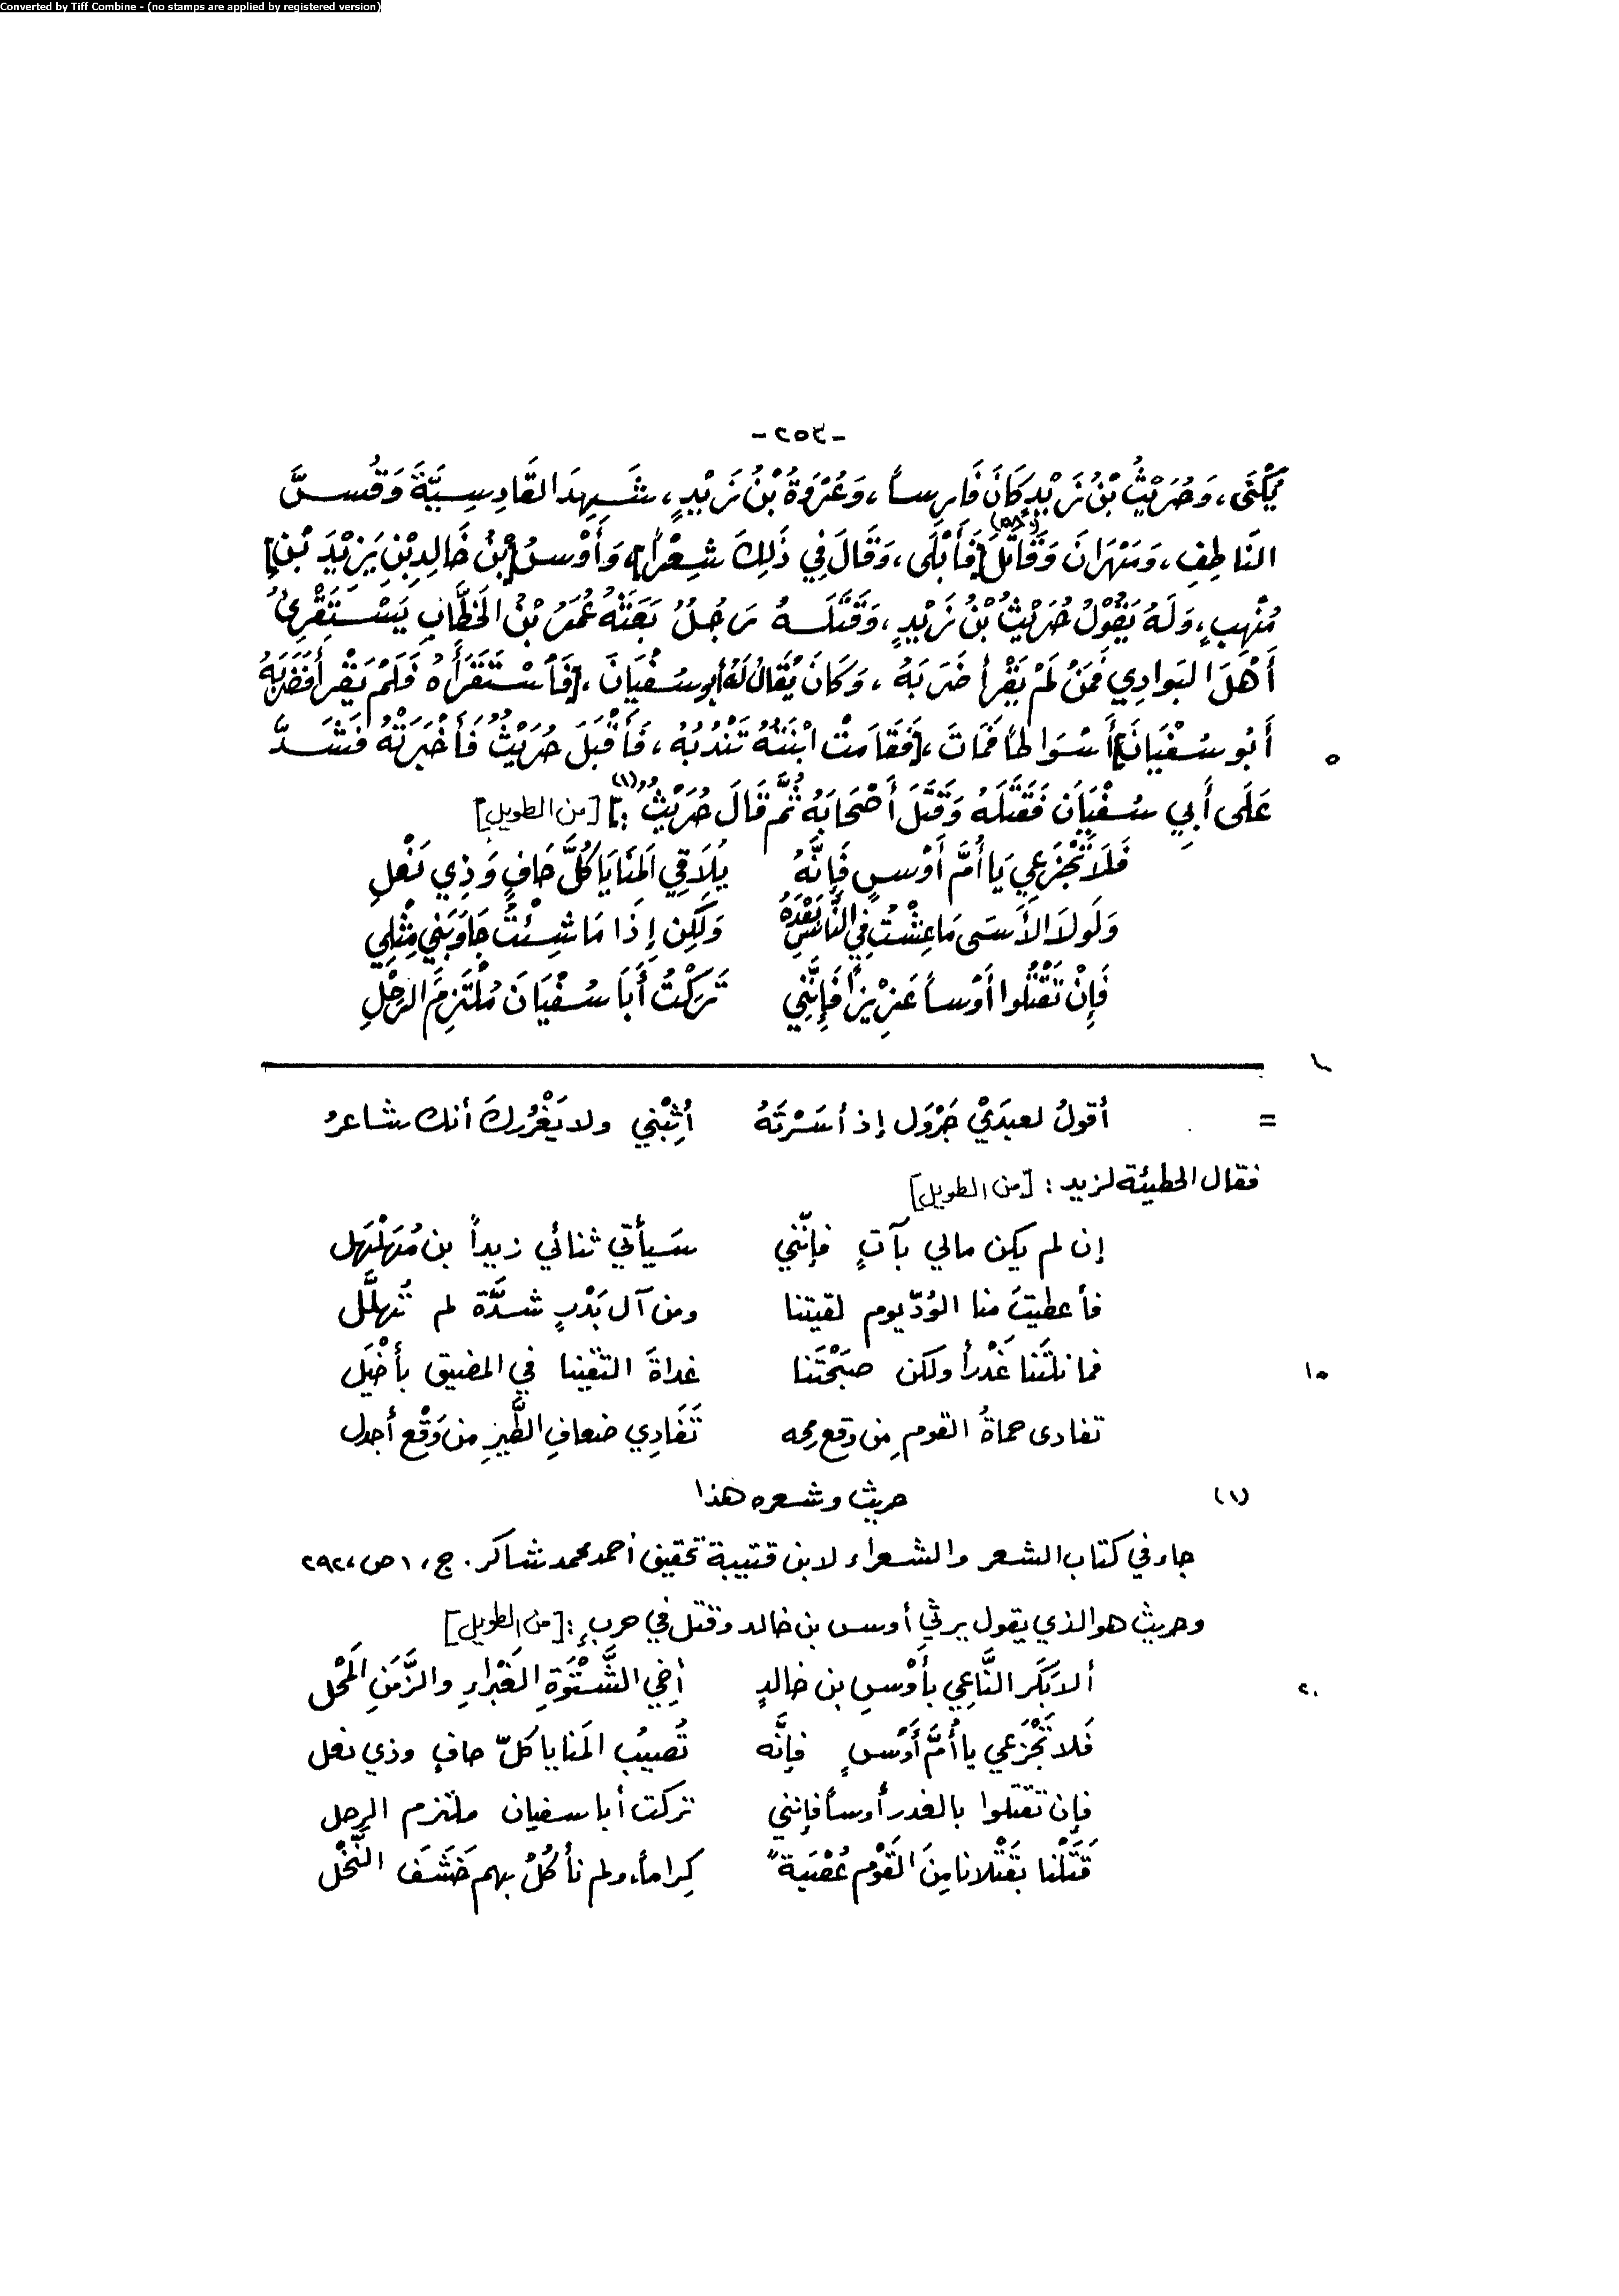 Converted by Tiff Combine - (no stamps are applied by registered version)
-٢٥٣-
يُكْنَى، وَحُرَيْثُ بْنُ زَيْدٍ كَانَ فَارِساً، وَعُرْوَةُ بْنُ زَيْدٍ، شَهِدَ القَادِسِيَّةَ وَقُسَّ
النَّاطِفِ، وَمِهْرَانَ وَقَاتَلَ [فَأَبْلَى، وَقَالَ فِي ذَلِكَ شِعْراً] وَأَوْسُ [بْنُ خَالِدِ بْنِ يَزِيْدَ بْنِ]
مُنْهِبٍ، وَلَهُ يَقُوْلُ حُرَيْثُ بْنُ زَيْدٍ، وَقَتَلَهُ رَجُلٌ بَعَثَهُ عُمَرُ بْنُ الخَطَّابِ يَسْتَقْرِئُ
أَهْلَ البَوادِي فَمَنْ لَمْ يَقْرأْ ضَرَبَهُ، وَكَانَ يُقَالُ لَهُ أبو سُفْيَانَ، [فَاسْتَقْرَأَهُ فَلَمْ يَقْرأ فَضَرَبَهُ
أَبُو سُفْيَانَ] أَسْوَاطاً فَمَاتَ، [فَقَامَتْ ابْنَتُهُ تَنْدُبُهُ، فَأَقْبَلَ حُرَيْثُ فَأَخْبَرَتْهُ فَشَدَّ
٥
عَلَى أَبِي سُفْيَانَ فَقَتَلَهُ وَقَتَلَ أَصْحَابَهُ ثُمَّ قَالَ حُرَيْثُ:] (١) [من الطويل]
فَلَا تَجْزَعِي يَا أُمَّ أَوْسٍ فَإِنَّهُ يُلَاقِي المَنَايَا كُلُّ حَافٍ وَذِي نَعْلِ
وَلَولَا الأَسَى مَا عِشْتُ فِي النَّاسِ بَعْدَهُ وَلَكِن إِذَا مَا شِئْتُ جَاوَبَنِي مِثْلِي
فَإِنْ تَقْتُلُوا أَوْساً عَزِيْزاً فَإِنَّنِي تَرَكْتُ أَبَا سُفْيَانَ مُلْتَزِمَ الرَّحْلِ
= أقولُ لعبدَيْ جَرْوَل إذ أسَرْتَهُ أثِبْني ولا يَغْرُركَ أنك شاعرُ
فقال الحطيئة لزيد: [من الطويل]
إن لم يكن مالي بآتٍ فإنّني سَيأتي ثنائي زيداً بن مُهَلْهِل
فأعطيتَ منا الوُدّ يوم لقيتنا ومن آل بَدْرٍ شدَّة لم تُهلَّل
فما نلتَنا غَدْراً ولكن صبَحْتَنا غداةَ التقينا في المضيق بأخْيَل
١٠
تفادى حماةُ القومِ من وقع رمحه تَفَادِي ضعافِ الطَّيرِ من وَقْع أجدل
(١) حريث وشعره هذا
جاء في كتاب الشعر والشعراء لابن قتيبة تحقيق أحمد محمد شاكر. ج، ١ ص، ٢٩٢
وحريث هو الذي يقول يرثي أوس بن خالد وقتل في حربٍ: [من الطويل]
ألا بَكَر النَّاعِي بأَوْسِ بن خالدٍ أخِي الشَّتْوَةِ الغَبْراءِ والزَّمَنِ المَحْل
٢٠
فَلا تَجْزَعي يا أُمَّ أَوْسٍ فإنَّه تُصيبُ المَنايا كلّ حافٍ وذي نعل
فإن تقتلوا بالغدر أوساً فإنني تركت أبا سفيان ملتزم الرحل
قَتَلْنا بقَتْلانا مِنَ القَوْم عُصْبَةً كِراماً، ولم نأكُلْ بهم حَشَفَ النَّخْل